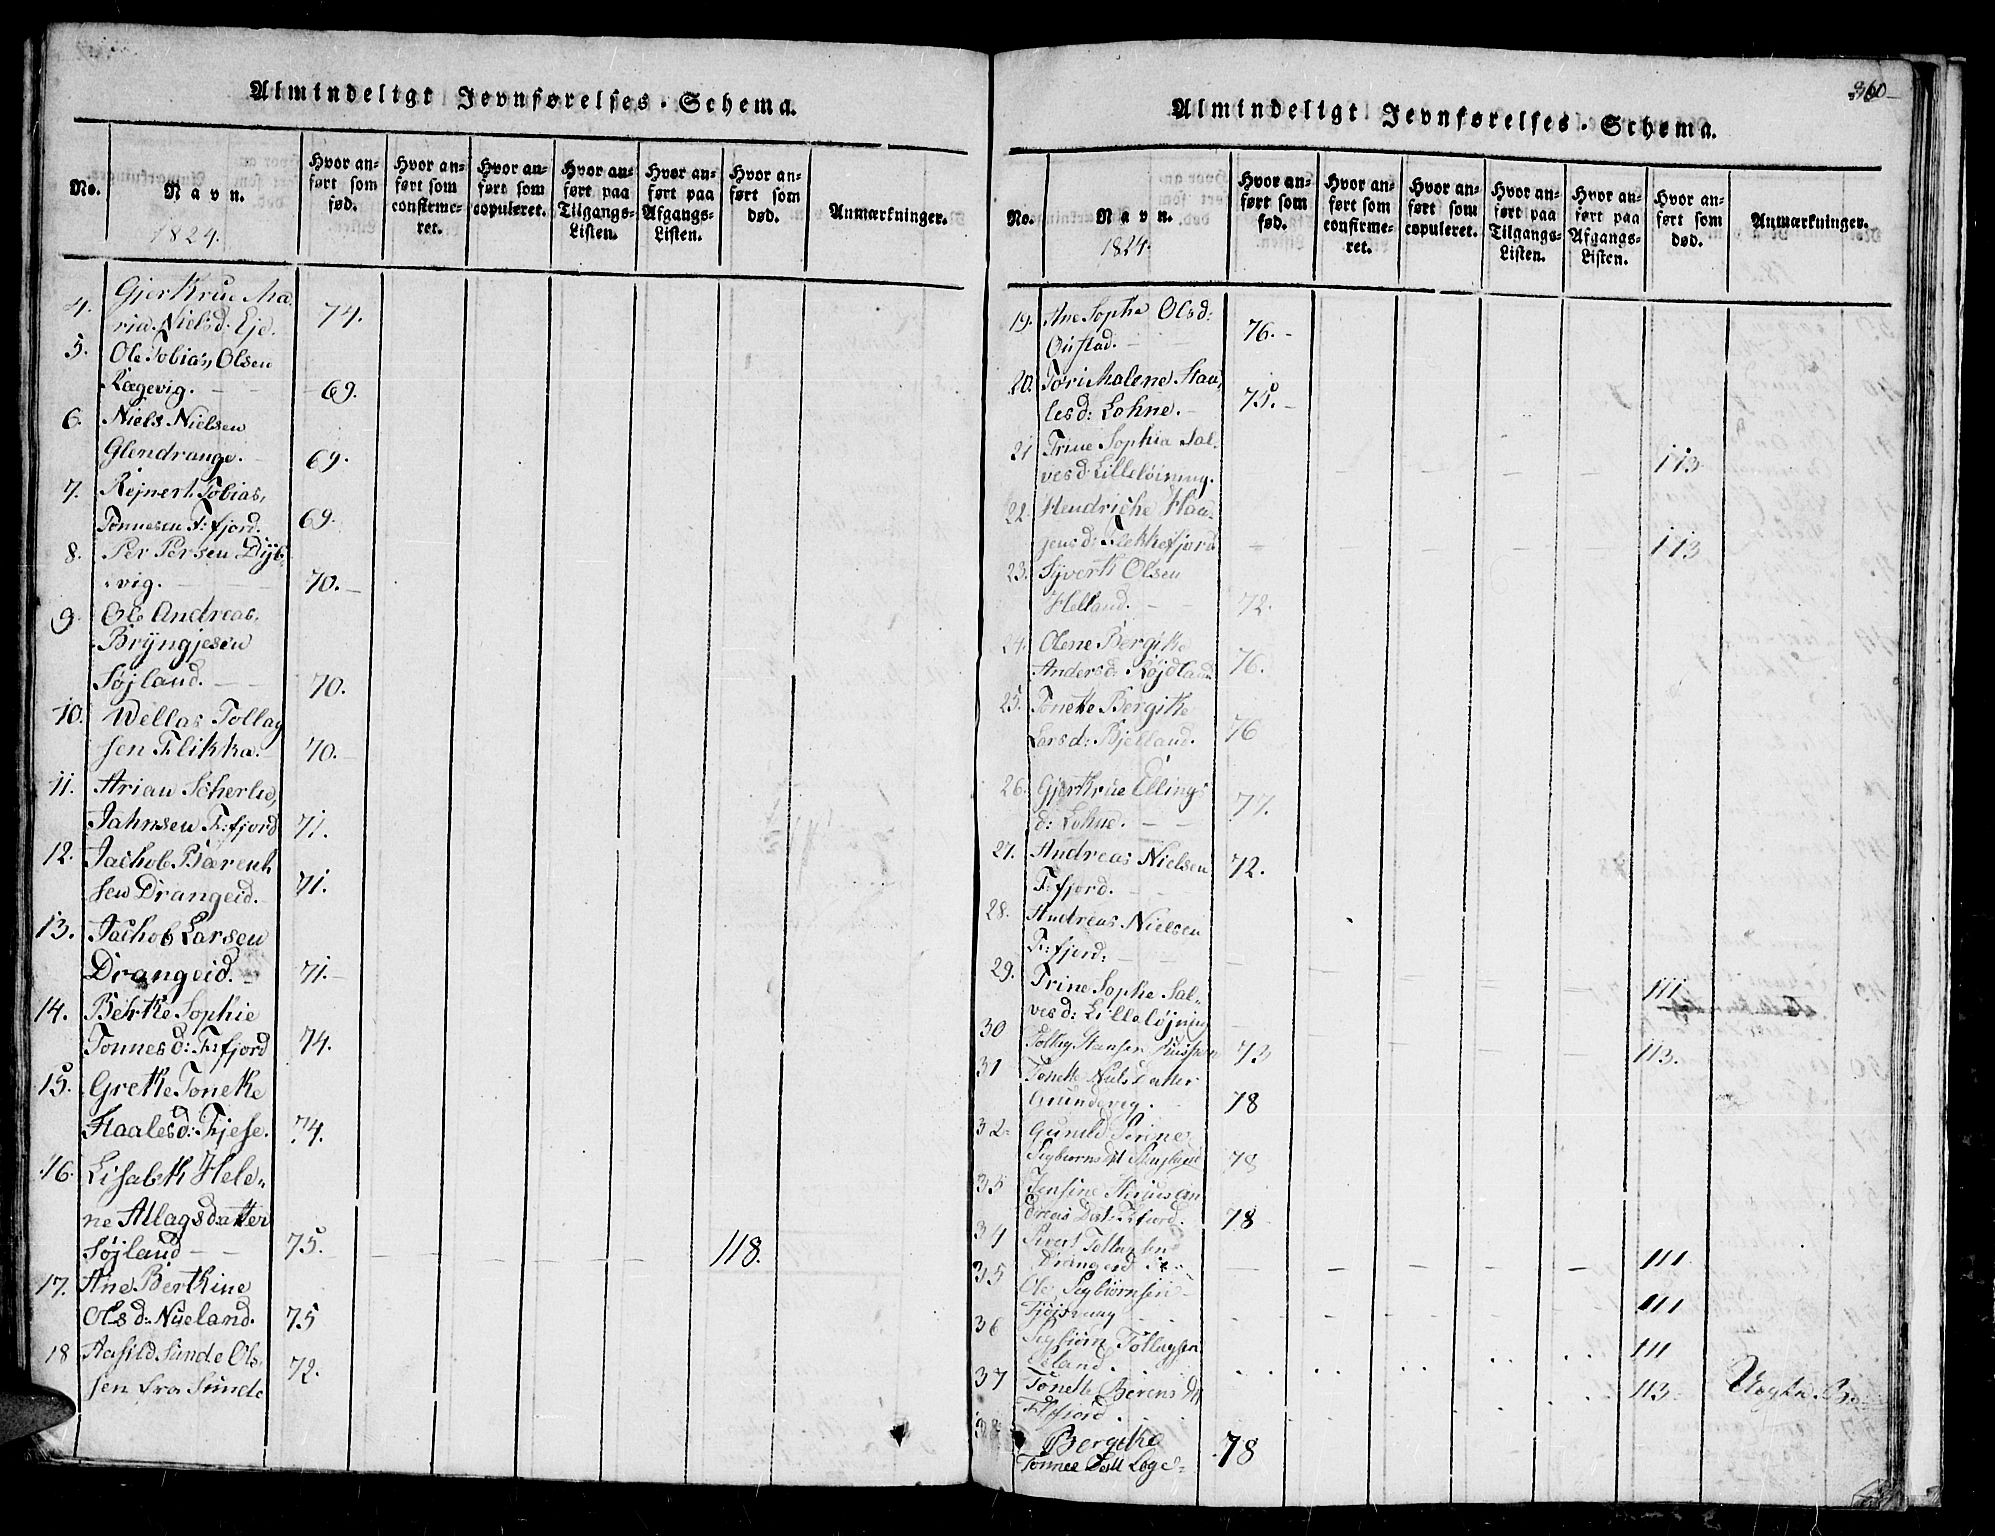 Almindeligt Jevnførelses-Schema.
No.
Navn.
1824.
Hvor an-
ført som
fød.
Hvor an-
ført som
confirme-
ret.
Hvor an-
ført som
copuleret.
Hvor an-
ført paa
Tilgangs-
Listen.
Hvor an-
ført paa
Afgangs-
Listen.
Hvor an-
ført som
død.
Anmærkninger.
4. Gjertrue Ma-
ria Nielsd. Eje. 74.
5. Ole Tobias Olsen
Rægevig. 69.
6. Niels Nielsen
Glendrange. 69.
7. Rejnert Tobias
Tønnesen F:fjord. 69.
8. Per Persen Dyb-
vig. 70.
9. Ole Andreas
Bryngjesen
Søjland. 70.
10. Wellas Tollag
sen Flikka. 70.
11. Arian Scherlie
Jahnsen F:fjord 71.
12. Jachob Bærent
sen Drangeid. 71.
13. Jachob Larsen
Drangeid. 71.
14. Behrte Sophie
Tønnesd: F:fjord 74.
15. Grette Tonette
Haalesd: Fjese. 74.
16. Lisabeth Hele-
ne Atlagsdatter
Søjland 75. 118.
17. Ane Berthine
Olsd: Nueland. 75
18 Aasild Sunde Ol-
sen fra Sunde 72.
Almindeligt Jevnførelses-Schema.
360
No.
Navn.
1824.
Hvor an-
ført som
fød.
Hvor an-
ført som
confirme-
ret.
Hvor an-
ført som
copuleret.
Hvor an-
ført paa
Tilgangs-
Listen.
Hvor an-
ført paa
Afgangs-
Listen.
Hvor an-
ført som
død.
Anmærkninger.
19. Ane Sophe Olsd:
Oustad. 76.
20. Tori Malene Haa-
lesd: Lohne. 75.
21 Trine Sophia Sal-
vesd: Lilleløining. 113
22. Hendriche Han-
sensd: Flekkefjord 113
23. Syvert Olsen
Helland. 72.
24. Olene Bergitte
Andersd: Løjdland 76.
25. Tonette Bergitte
Larsd: Bjelland. 76
26. Gjertrue Ellings
d: Lohne. 77.
27. Andreas Nielsen
F:fjord. 72.
28. Andreas Nielsen
F:fjord: 111
29. Trine Sophe Sal-
vesd: Lilleløjning 113.
30 Tolleg Hansen 73
31 Tonette Nielsdatter
Grundevig. 78
32 Gunild Serine
Sigbiørnsdt 78
33 Jensine An
dreas Dat: F:fjord. 78
34 Sivert Tollagsen
Drangeid 111
35 Ole Sigbiørnsen
111
36 Sigbiørn Tollagsen
Eeland. 111
37 Tonette Berens dt
F:fjord 113
38 Bergitte
Tønnes Datt Lege 78